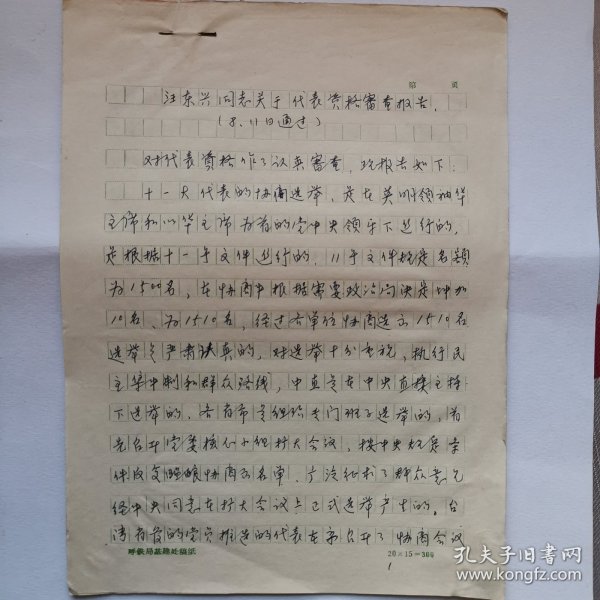 第 页
汪东兴同志关于代表资格审查报告.
(8.11日通过)
对代表资格作了认真审查,现报告如下.
十一大代表的协商选举,是在英明领袖华
主席和以华主席为首的党中央领导下进行的,
是根据十一号文件进行的.11号文件规定名额
为1500名,在协商中根据需要政治局决定增加
10名、为1510名,经过各单位协商选出1510名
选举是严肃认真的,对选举十分重视,执行民
主集中制和群众路线,中直是在中央直接主持
下选举的.各省市是组织专门班子选举的,首
先召开党委核心小组扩大会议,按中央规定条
件反复酝酿协商出名单.广泛征求了群众意见
经中央同意在扩大会议上正式选举产生的.台
湾省籍的党员推选的代表在京召开了协商会议
呼铁局基建处稿纸
20×15=300
1
孔夫子旧书网
www.kongfz.com